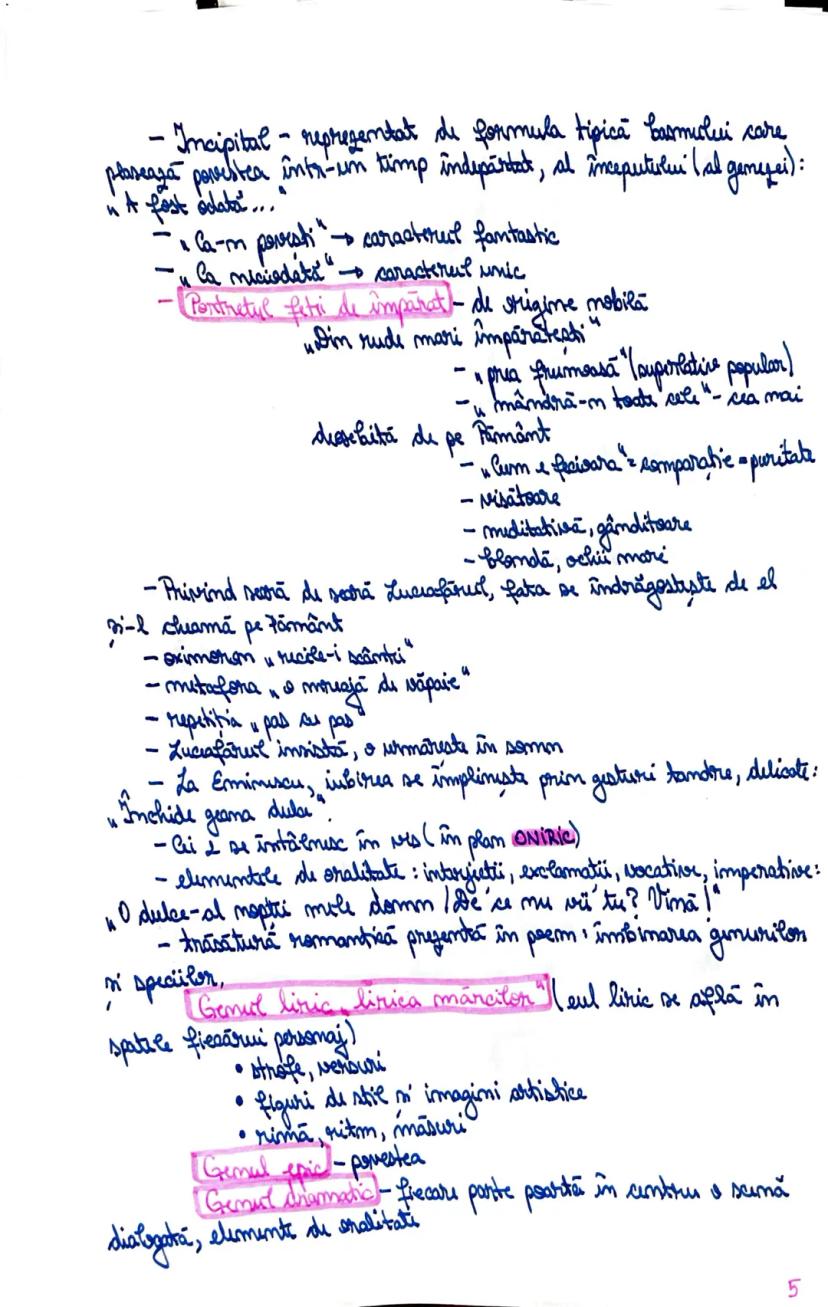 - Incipitul - reprezentat de formula tipică basmului care
plasează povestea într-un timp îndepărtat, al începutului (al genezei):
„A fost odată..."
- „Ca-n povești" → caracterul fantastic
- „Ca niciodată" → caracterul unic
- Portretul fetei de împărat - de origine nobilă
„Din rude mari împărătești"
- „prea frumoasă" (superlativ popular)
- „mândră-n toate cele" - cea mai
deosebită de pe Pământ
- „Cum e fecioara" = comparație = puritate
- visătoare
- meditativă, gânditoare
- blondă, ochii mari
- Privind seară de seară Luceafărul, fata se îndrăgostește de el
și-l cheamă pe Pământ
- oximoron „recile-i scântei"
- metafora „o mreajă de văpaie"
- repetiția „pas cu pas"
- Luceafărul insistă, o urmărește în somn
- La Eminescu, iubirea se împlinește prin gesturi tandre, delicate:
„Închide geana dulce".
- Cei 2 se întâlnesc în vis (în plan ONIRIC)
- elementele de oralitate: interjecții, exclamații, vocative, imperative:
„O dulce-al nopții mele domn / De ce nu vii tu? Vină!"
- trăsătură romantică prezentă în poem: îmbinarea genurilor
și speciilor,
Genul liric „lirica măștilor" (eul liric se află în
spatele fiecărui personaj)
• strofe, versuri
• figuri de stil și imagini artistice
• rimă, ritm, măsuri
Genul epic - povestea
Genul dramatic - fiecare parte poartă în centru o scenă
dialogată, elemente de oralitate
5